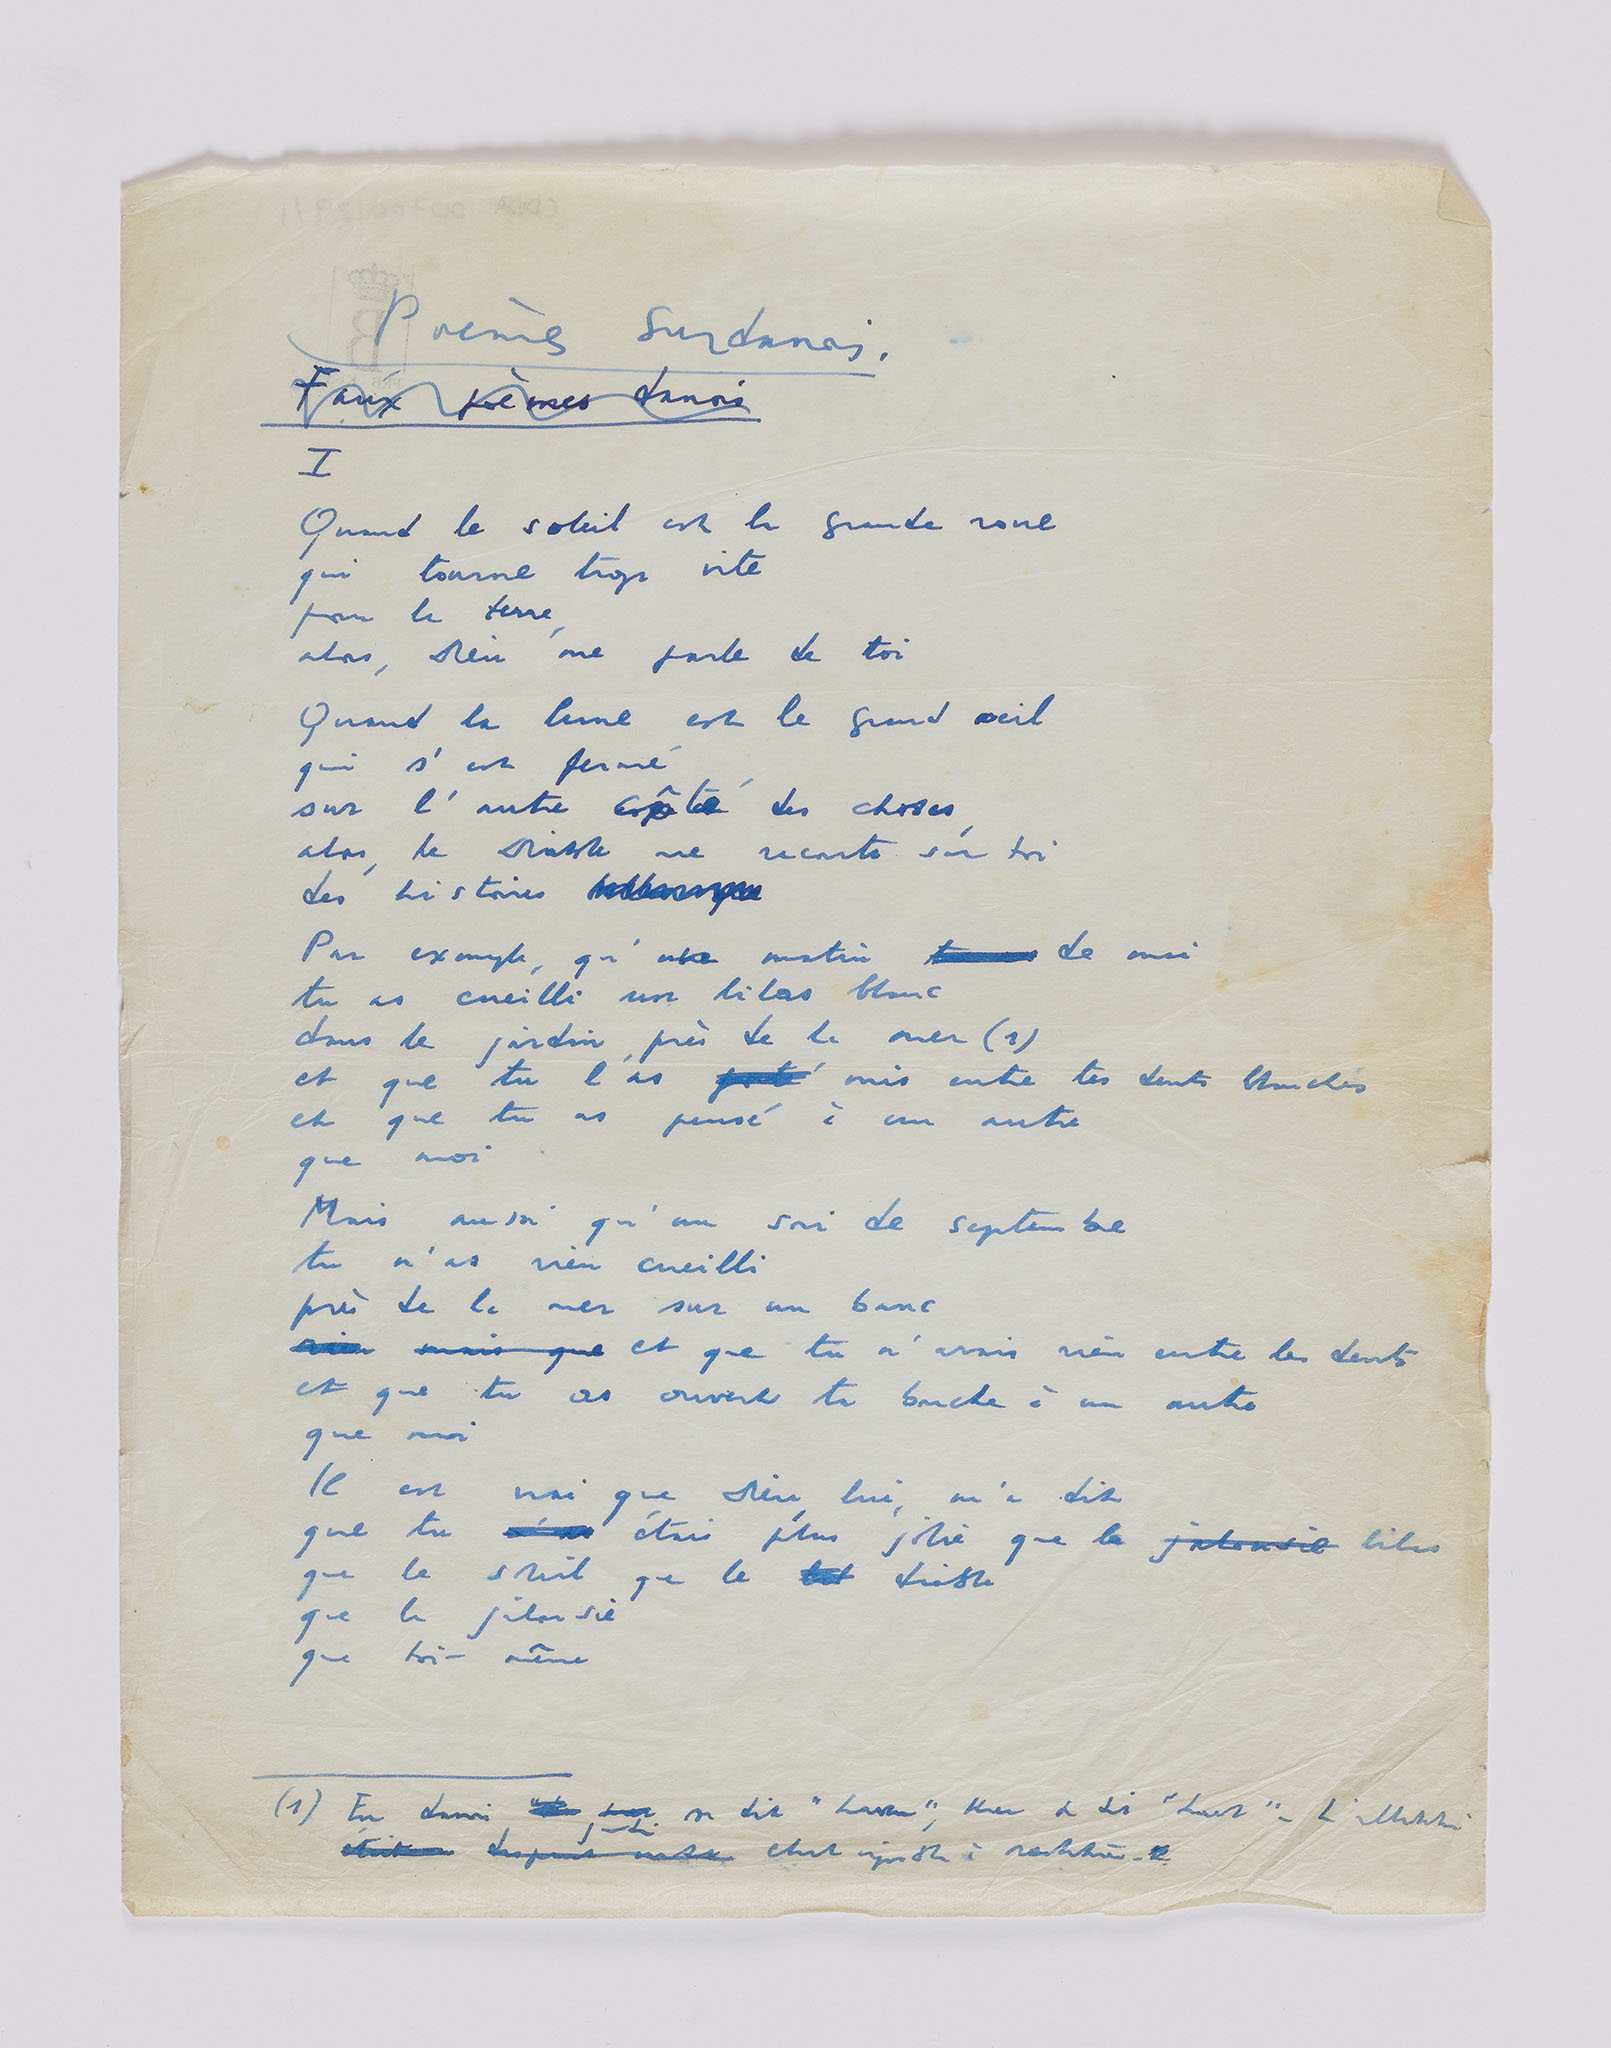 Poèmes Surdanois.
Faux poèmes danois
I
Quand le soleil est la grande roue
qui tourne trop vite
pour la terre,
alors, Dieu me parle de toi
Quand la lune est le grand oeil
qui s'est fermé
sur l'autre côté des choses,
alors, le Diable me raconte sur toi
des histoires
Par exemple, qu'un matin de mai
tu as cueilli un lilas blanc
dans le jardin, près de la mer (1)
et que tu l'as porté mis entre tes dents blanches
et que tu as pensé à un autre
que moi
Mais aussi qu'un soir de septembre
tu n'as rien cueilli
près de la mer sur un banc
rien mais que et que tu n'avais rien entre les dents
et que tu as ouvert ta bouche à un autre
que moi
Il est vrai que Dieu, lui, m'a dit
que tu étais plus jolie que le jalousie lilas
que le soleil que le diable
que la jalousie
que toi-même
(1) En danois jardin se dit "haven", mer se dit "havet". L'allitération
était impossible à